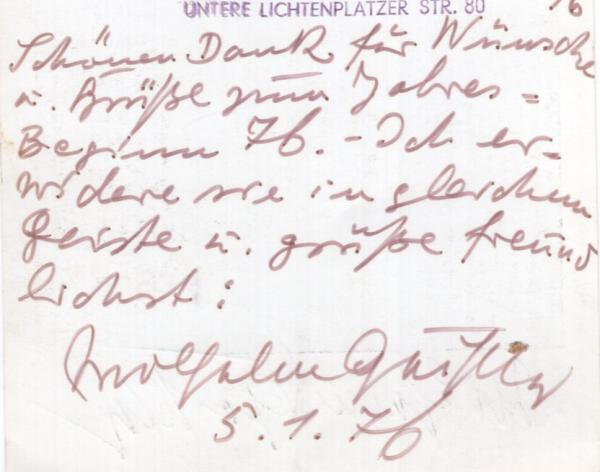 UNTERE LICHTENPLATZER STR. 80
76
Schönen Dank für Wünsche
u. Grüße zum Jahres=
Beginn 76. - Ich er-
widere sie in gleichem
Geiste u. grüße freund
lichst:
Wilhelm Geißler
5.1.76